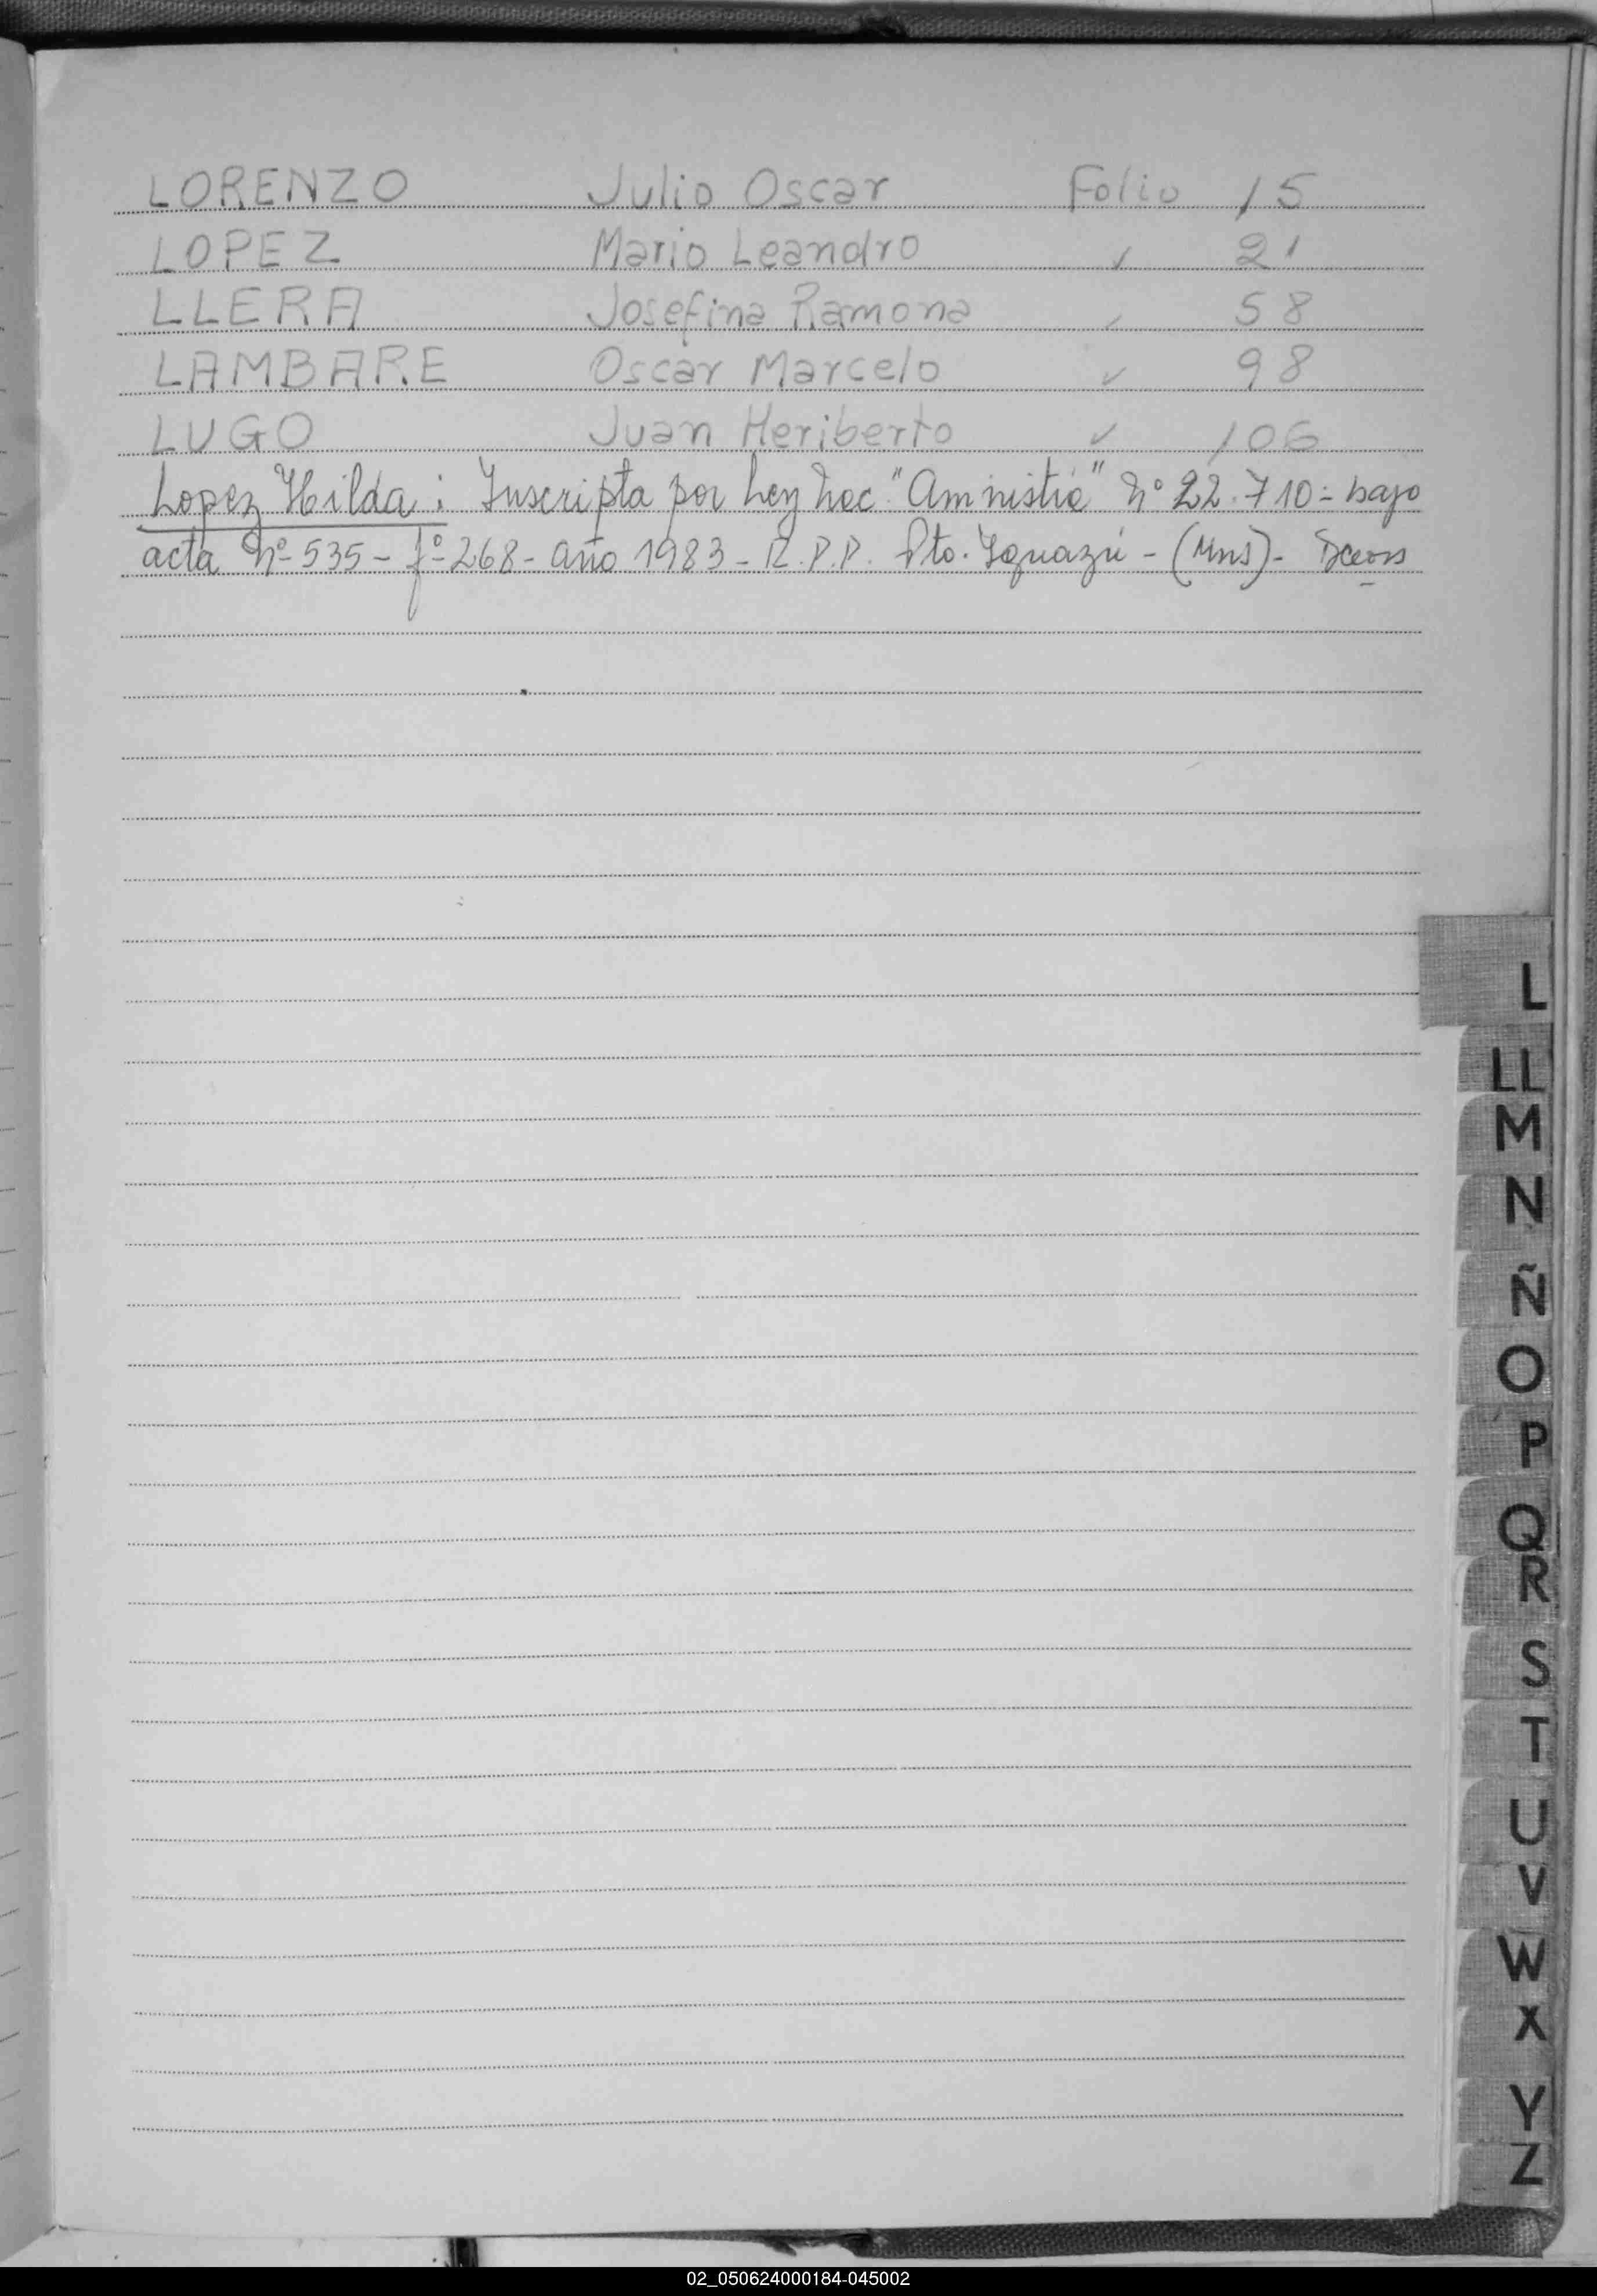 LORENZO Julio Oscar Folio 15
LOPEZ Mario Leandro ✓ 21
LLERA Josefina Ramona ✓ 58
LAMBARE Oscar Marcelo ✓ 98
LUGO Juan Heriberto ✓ 106
Lopez Hilda: Inscripta por Ley Nac. "Amnistia" Nº 22.710= bajo
acta Nº 535 - fº 268 - año 1983 - R.P.P. Pto. Iguazú - (Mns) -
L
LL
M
N
Ñ
O
P
Q
R
S
T
U
V
W
X
Y
Z
02_050624000184-045002